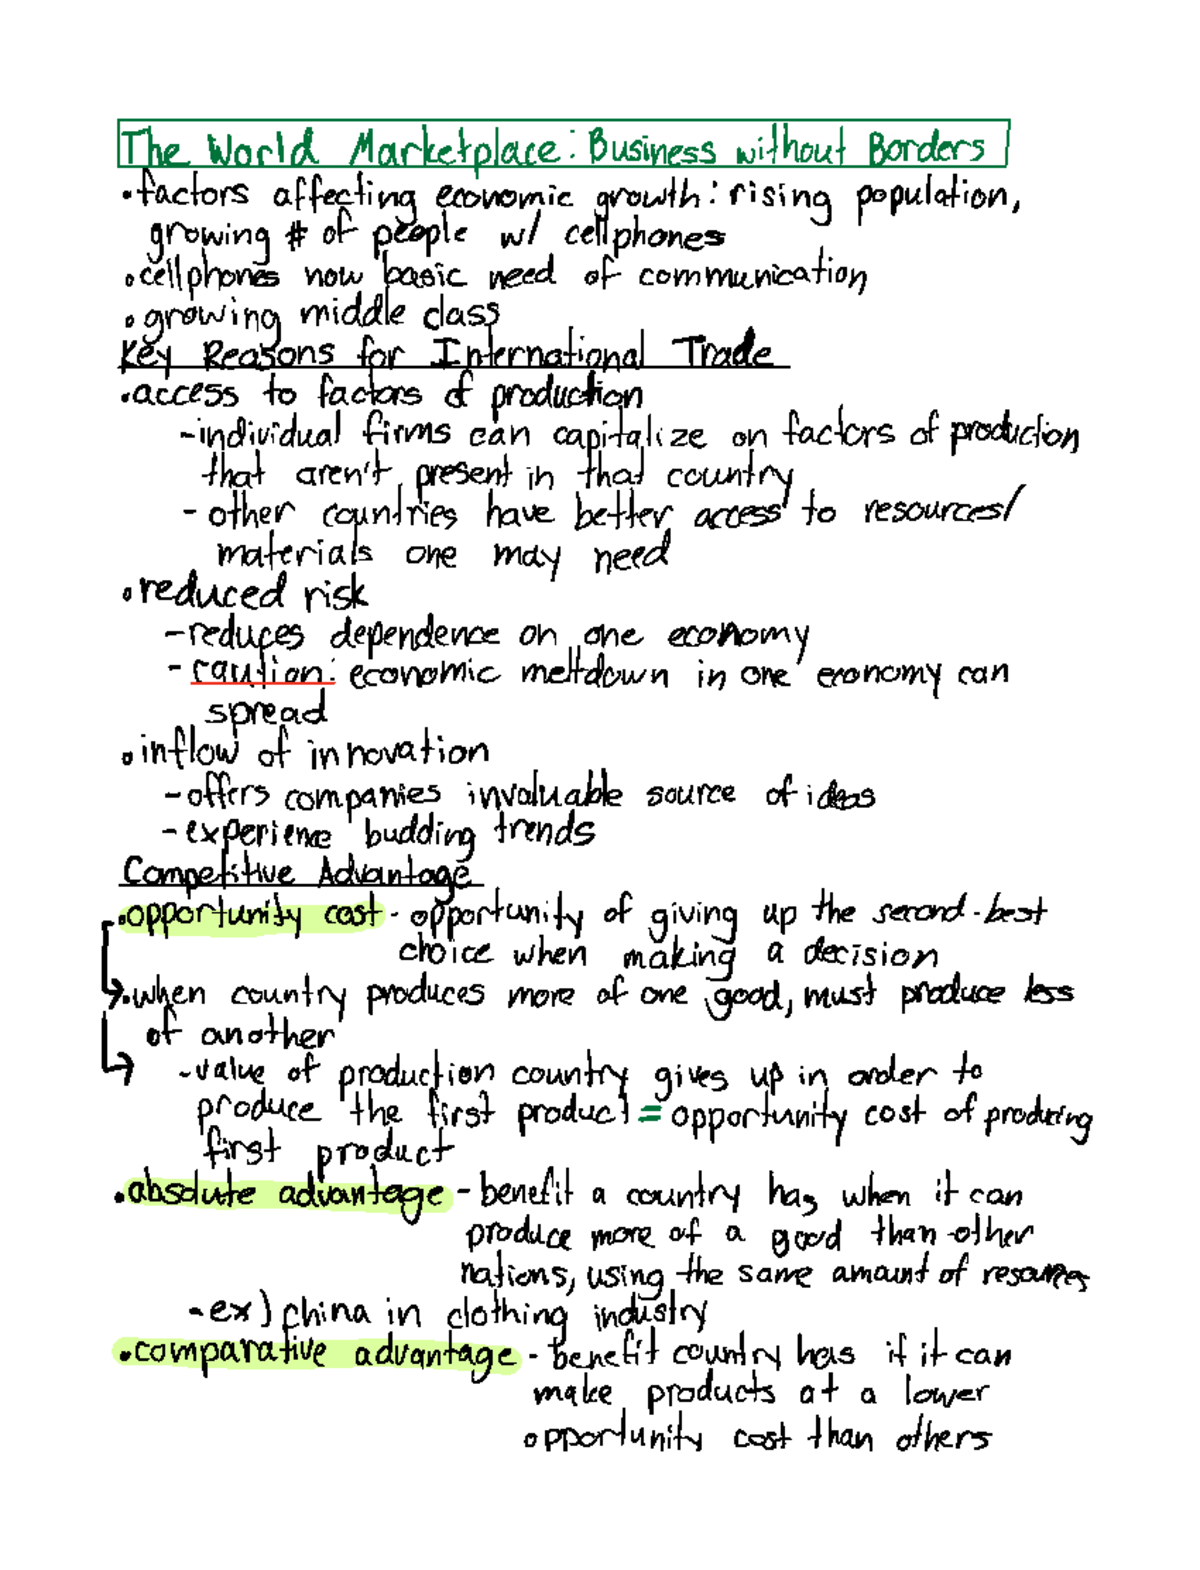 The World Marketplace: Business without Borders
• factors affecting economic growth: rising population,
growing # of people w/ cellphones
• cellphones now basic need of communication
• growing middle class
Key Reasons for International Trade
• access to factors of production
- individual firms can capitalize on factors of production
that aren't present in that country
- other countries have better access to resources/
materials one may need
• reduced risk
- reduces dependence on one economy
- caution: economic meltdown in one economy can
spread
• inflow of innovation
- offers companies invaluable source of ideas
- experience budding trends
Competitive Advantage
• opportunity cost - opportunity of giving up the second-best
choice when making a decision
• when country produces more of one good, must produce less
of another
- value of production country gives up in order to
produce the first product = opportunity cost of producing
first product
• absolute advantage - benefit a country has when it can
produce more of a good than other
nations, using the same amount of resources
- ex) china in clothing industry
• comparative advantage - benefit country has if it can
make products at a lower
opportunity cost than others